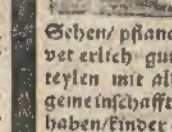 Sehen/ pflan
vet erlich gut
teylen mit al
gemeinschafft
haben/kinder